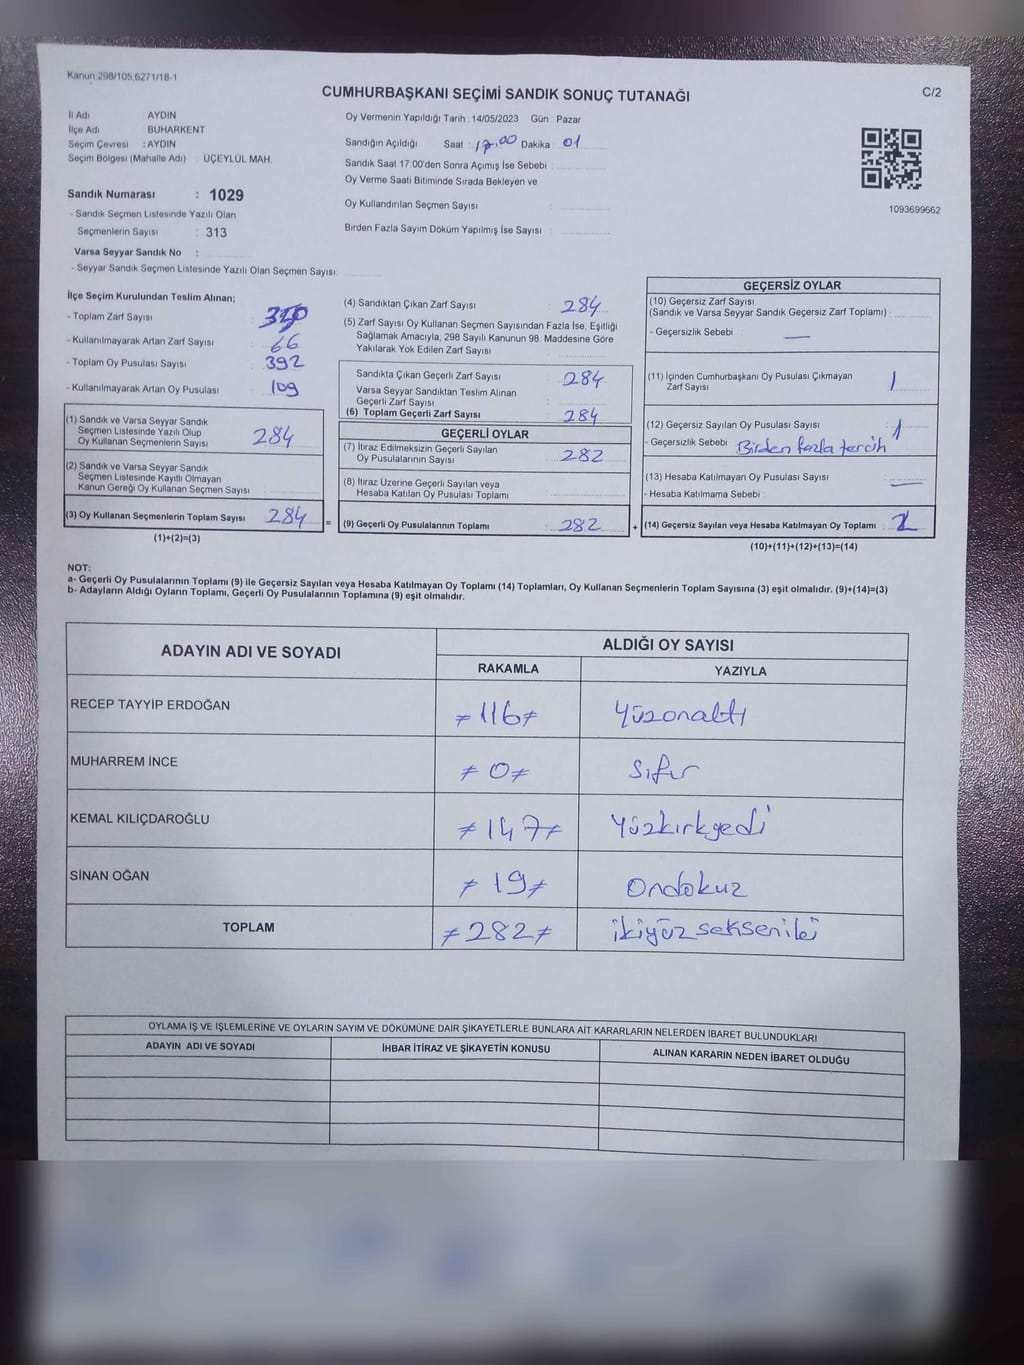 Kanun 298/105,6271/18-1
CUMHURBAŞKANI SEÇİMİ SANDIK SONUÇ TUTANAĞI
C/2
İl Adı AYDIN
İlçe Adı BUHARKENT
Seçim Çevresi : AYDIN
Seçim Bölgesi (Mahalle Adı) : ÜÇEYLÜL MAH.
Sandık Numarası : 1029
- Sandık Seçmen Listesinde Yazılı Olan
Seçmenlerin Sayısı : 313
Varsa Seyyar Sandık No :
- Seyyar Sandık Seçmen Listesinde Yazılı Olan Seçmen Sayısı:
Oy Vermenin Yapıldığı Tarih : 14/05/2023 Gün : Pazar
Sandığın Açıldığı Saat : 17.00 Dakika : 01
Sandık Saat 17 00'den Sonra Açımış İse Sebebi :
Oy Verme Saati Bitiminde Sırada Bekleyen ve
Oy Kullandırılan Seçmen Sayısı :
Birden Fazla Sayım Döküm Yapılmış İse Sayısı :
1093699662
İlçe Seçim Kurulundan Teslim Alınan;
- Toplam Zarf Sayısı : 350
- Kullanılmayarak Artan Zarf Sayısı : 66
- Toplam Oy Pusulası Sayısı : 392
- Kullanılmayarak Artan Oy Pusulası : 109
(1) Sandık ve Varsa Seyyar Sandık
Seçmen Listesinde Yazılı Olup
Oy Kullanan Seçmenlerin Sayısı : 284
(2) Sandık ve Varsa Seyyar Sandık
Seçmen Listesinde Kayıtlı Olmayan
Kanun Gereği Oy Kullanan Seçmen Sayısı :
(3) Oy Kullanan Seçmenlerin Toplam Sayısı : 284 =
(1)+(2)=(3)
(4) Sandıktan Çıkan Zarf Sayısı : 284
(5) Zarf Sayısı Oy Kullanan Seçmen Sayısından Fazla İse, Eşitliği
Sağlamak Amacıyla, 298 Sayılı Kanunun 98. Maddesine Göre
Yakılarak Yok Edilen Zarf Sayısı :
Sandıkta Çıkan Geçerli Zarf Sayısı : 284
Varsa Seyyar Sandıktan Teslim Alınan
Geçerli Zarf Sayısı :
(6) Toplam Geçerli Zarf Sayısı : 284
GEÇERLİ OYLAR
(7) İtiraz Edilmeksizin Geçerli Sayılan
Oy Pusulalarının Sayısı : 282
(8) İtiraz Üzerine Geçerli Sayılan veya
Hesaba Katılan Oy Pusulası Toplamı :
(9) Geçerli Oy Pusulalarının Toplamı : 282 +
GEÇERSİZ OYLAR
(10) Geçersiz Zarf Sayısı
(Sandık ve Varsa Seyyar Sandık Geçersiz Zarf Toplamı) :
- Geçersizlik Sebebi : —
(11) İçinden Cumhurbaşkanı Oy Pusulası Çıkmayan
Zarf Sayısı : 1
(12) Geçersiz Sayılan Oy Pusulası Sayısı : 1
- Geçersizlik Sebebi : Birden fazla tercih
(13) Hesaba Katılmayan Oy Pusulası Sayısı : —
- Hesaba Katılmama Sebebi :
(14) Geçersiz Sayılan veya Hesaba Katılmayan Oy Toplamı : 2
(10)+(11)+(12)+(13)=(14)
NOT:
a- Geçerli Oy Pusulalarının Toplamı (9) ile Geçersiz Sayılan veya Hesaba Katılmayan Oy Toplamı (14) Toplamları, Oy Kullanan Seçmenlerin Toplam Sayısına (3) eşit olmalıdır. (9)+(14)=(3)
b- Adayların Aldığı Oyların Toplamı, Geçerli Oy Pusulalarının Toplamına (9) eşit olmalıdır.
ADAYIN ADI VE SOYADI
ALDIĞI OY SAYISI
RAKAMLA YAZIYLA
RECEP TAYYİP ERDOĞAN ≠116≠ Yüzonaltı
MUHARREM İNCE ≠0≠ Sıfır
KEMAL KILIÇDAROĞLU ≠147≠ Yüzkırkyedi
SİNAN OĞAN ≠19≠ Ondokuz
TOPLAM ≠282≠ ikiyüzsekseniki
OYLAMA İŞ VE İŞLEMLERİNE VE OYLARIN SAYIM VE DÖKÜMÜNE DAİR ŞİKAYETLERLE BUNLARA AİT KARARLARIN NELERDEN İBARET BULUNDUKLARI
ADAYIN ADI VE SOYADI İHBAR İTİRAZ VE ŞİKAYETİN KONUSU ALINAN KARARIN NEDEN İBARET OLDUĞU